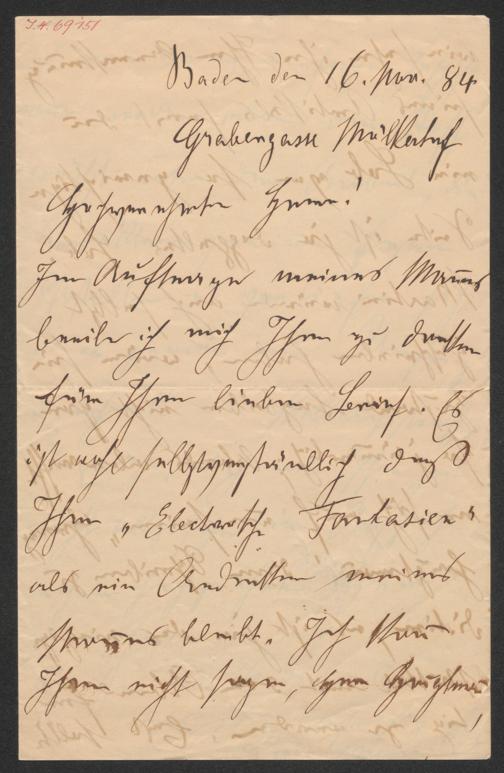 I.N. 69151
Baden den 16. Nov. 84
Grabengasse Mölkerhof
Hochverehrter Herr!
Im Auftrage meines Mannes
beeile ich mich Ihnen zu danken
für Ihren lieben Brief. Es
ist wohl selbstverständlich daß
Ihre „Electrische Fantasien“
als ein Andenken meines
Mannes bleibt. Ich kann
Ihnen nicht sagen,